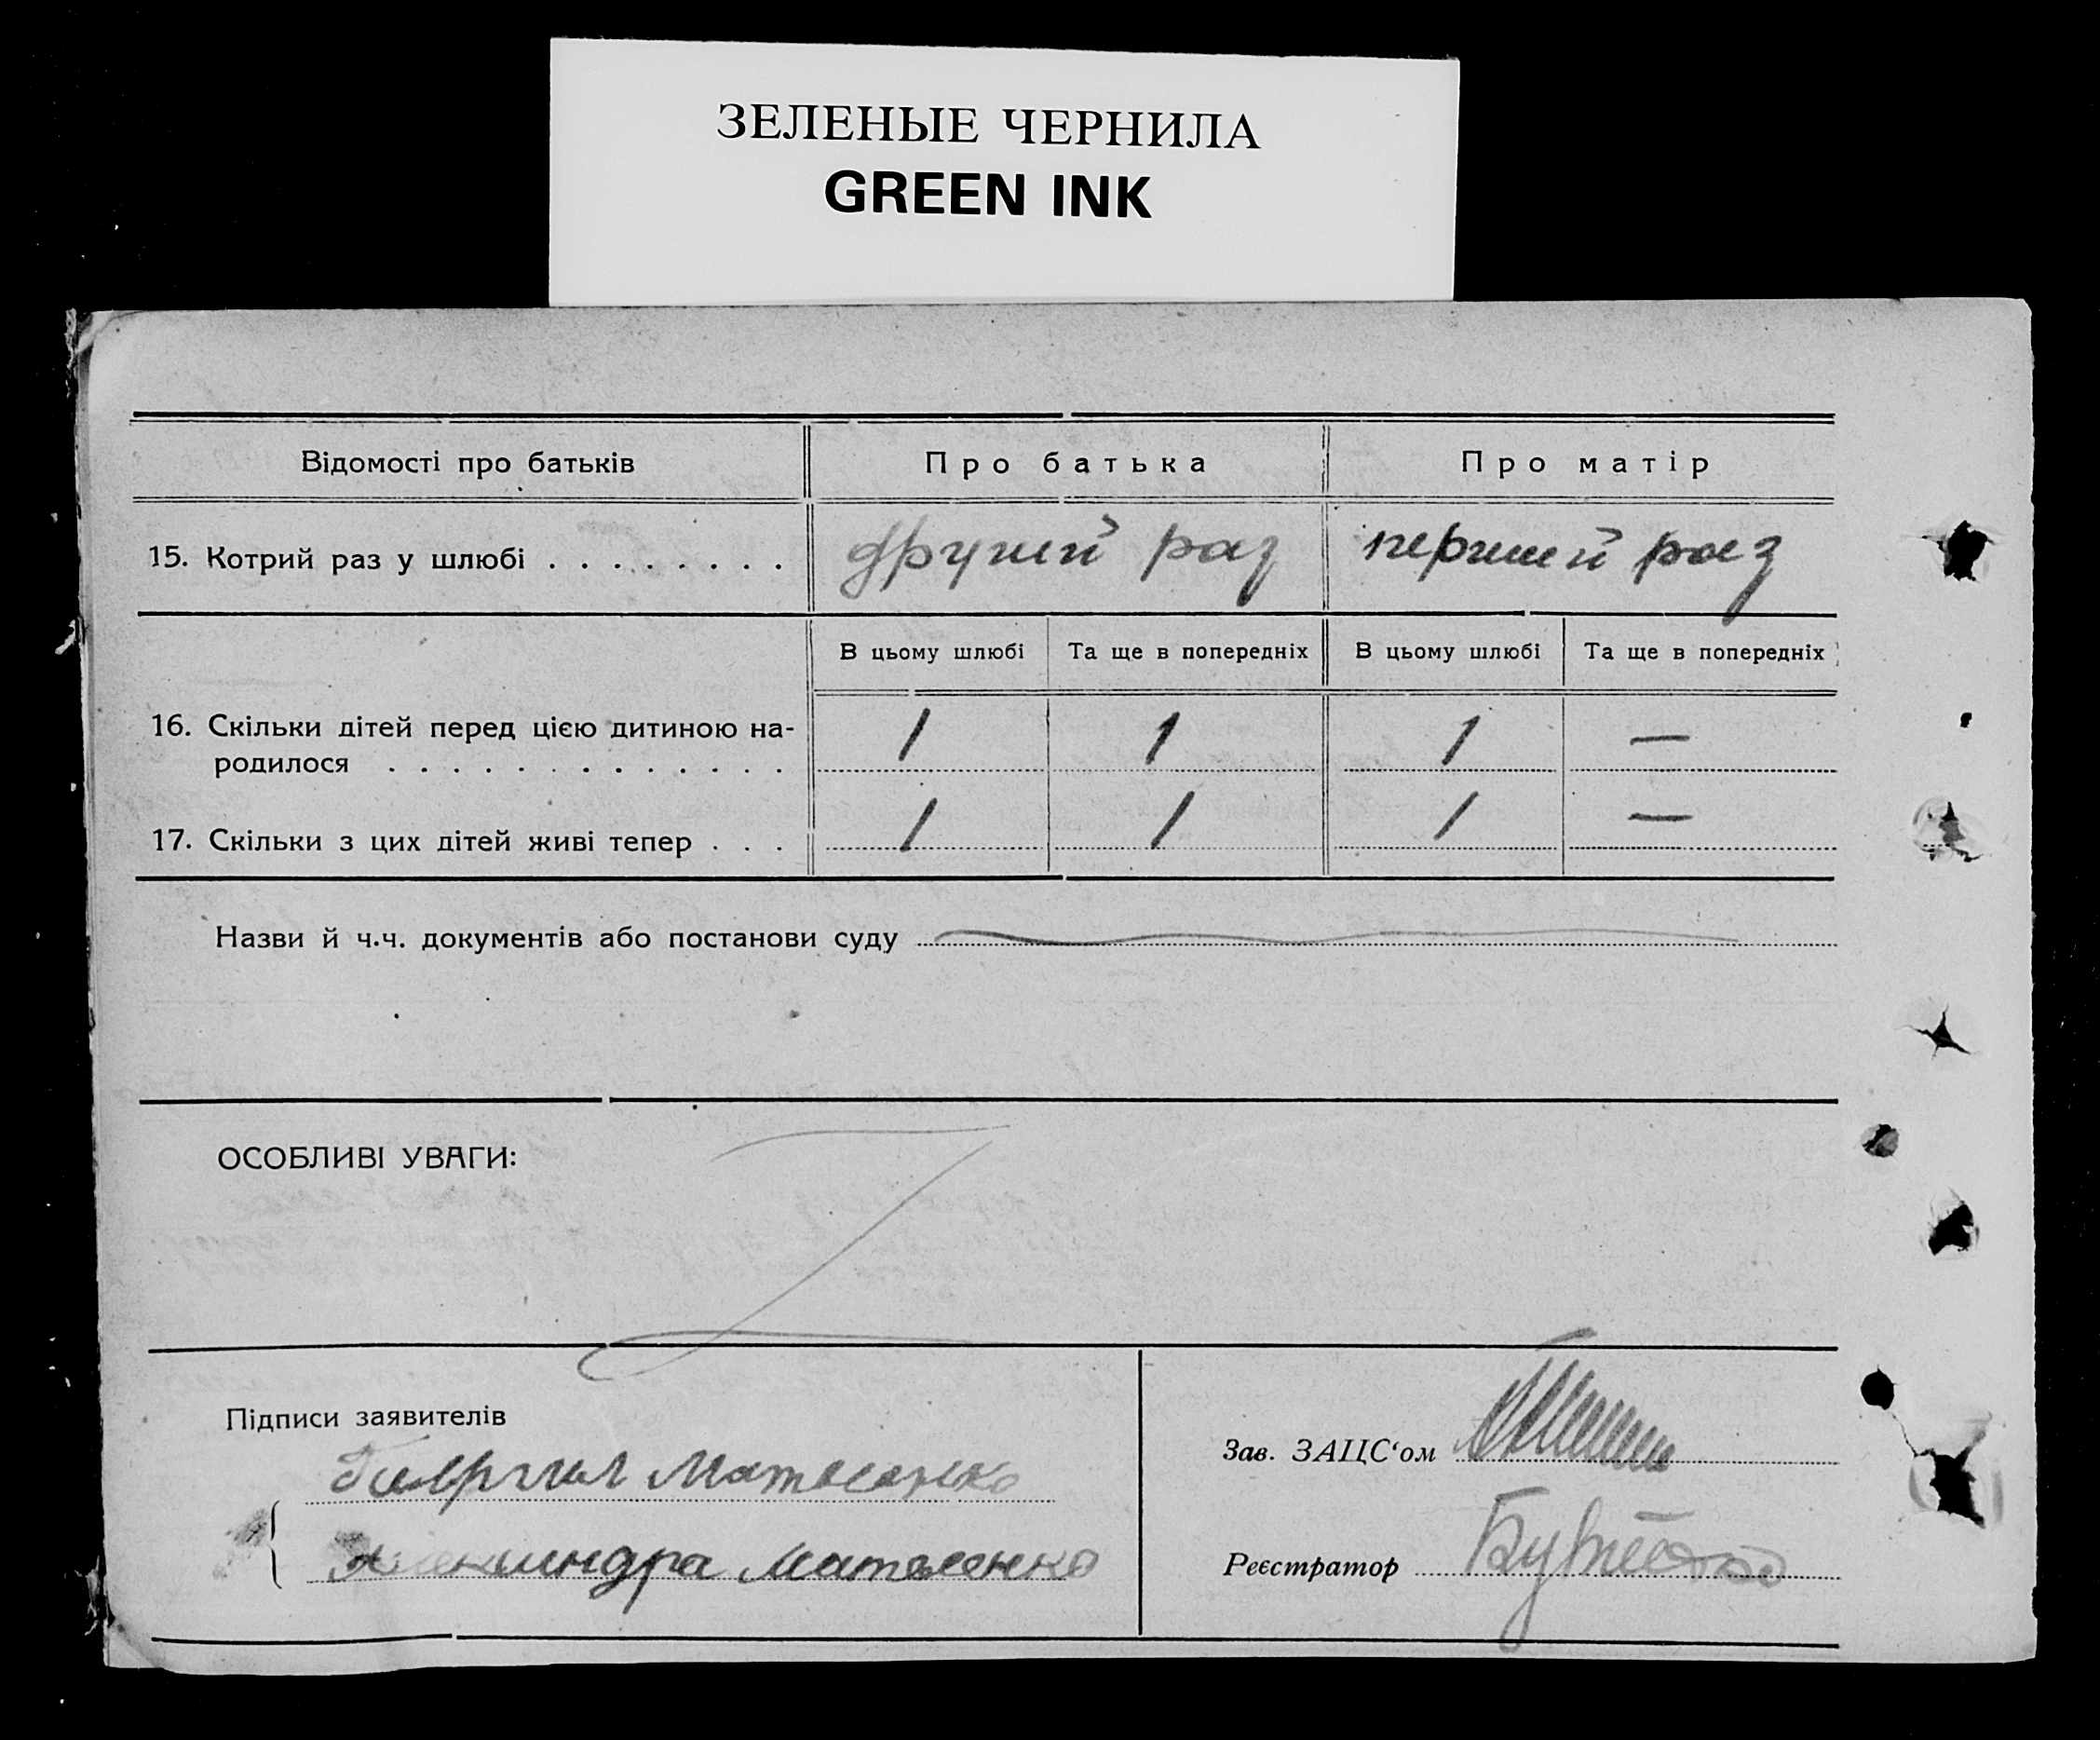 ЗЕЛЕНЫЕ ЧЕРНИЛА
GREEN INK
Відомості про батьків Про батька Про матір
15. Котрий раз у шлюбі . . . . . . . . другий раз перший раз
В цьому шлюбі Та ще в попередніх В цьому шлюбі Та ще в попередніх
16. Скільки дітей перед цією дитиною на- 1 1 1 —
родилося . . . . . . . . . . . . .
17. Скільки з цих дітей живі тепер . . . 1 1 1 —
Назви й ч.ч. документів або постанови суду
ОСОБЛИВІ УВАГИ:
Підписи заявителів
Зав. ЗАЦС‘ом
Гавриил Матвеенко
Реєстратор
Александра Матвеенко